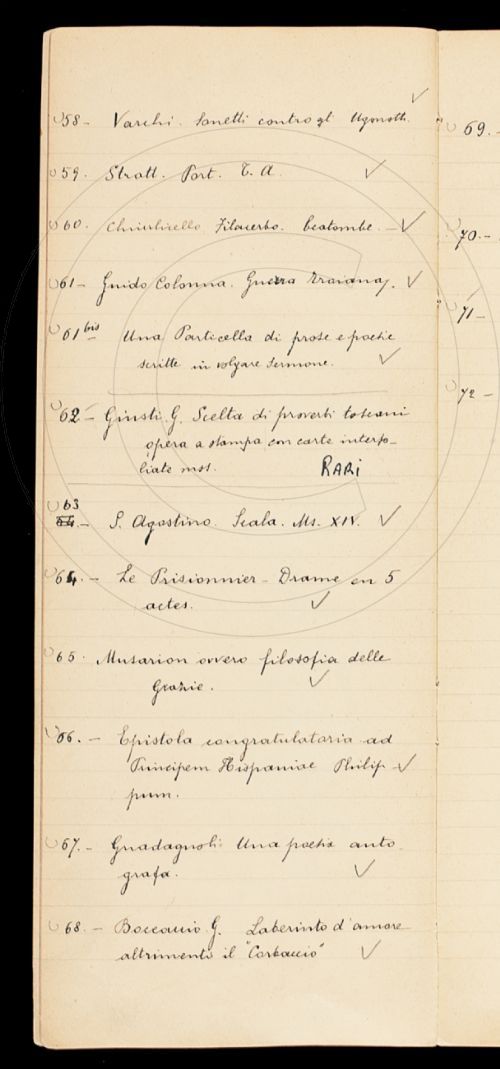 58- Varchi. Sonetti contro gl' Ugonotti.
59. Strott. Port. T. A.
60. Filocerbo. beatombe. -
61- Guido Colonna. Guerra Troiana.
61 bis Una Particella di prose e poesie
scritte in volgare Sermone.
62- Giusti G. Scelta di proverbi toscani
opera a stampa con carte interfo-
liate mss. RARI
63
64.- S. Agostino. Scala. Ms. XIV.
64. - Le Prisionnier - Drame en 5
actes.
65. Musarion ovvero filosofia delle
Grazie.
66. - Epistola congratulatoria ad
Principem Hispaniae Philip-
pum.
67. - Guadagnoli: Una poesia auto-
grafa.
68. - Boccaccio G. Laberinto d'amore
altrimenti il "Corbaccio"
69. -
70. -
71 -
72 -